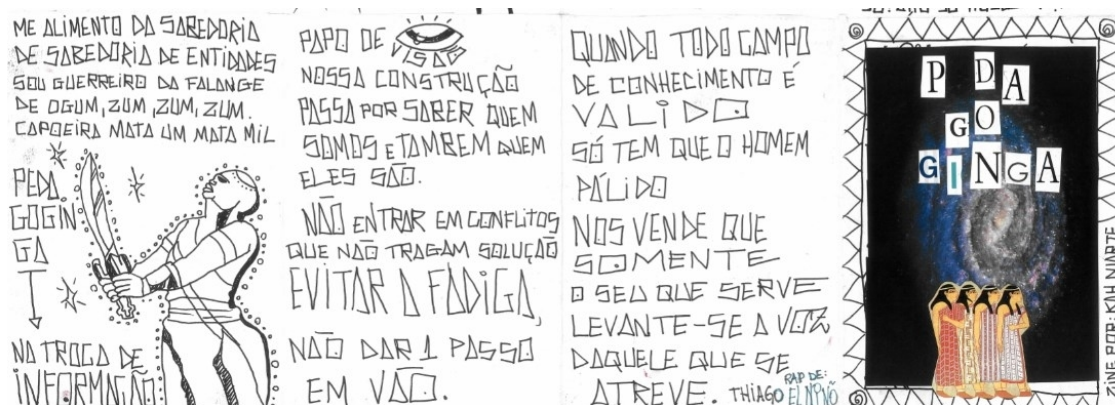 ME ALIMENTO DA SABEDORIA
DE SABEDORIA DE ENTIDADES
SOU GUERREIRO DA FALANGE
DE OGUM, ZUM, ZUM, ZUM.
CAPOEIRA MATA UM MATA MIL
PEDA
GOGIN
GA
NA TROCA DE
INFORMAÇÃO
PAPO DE
VISÃO
NOSSA CONSTRUÇÃO
PASSA POR SABER QUEM
SOMOS E TAMBEM QUEM
ELES SÃO.
NÃO ENTRAR EM CONFLITOS
QUE NÃO TRAGAM SOLUÇÃO
EVITAR A FADIGA,
NÃO DAR 1 PASSO
EM VÃO.
QUANDO TODO CAMPO
DE CONHECIMENTO É
VALIDO
SÓ TEM QUE O HOMEM
PÁLIDO
NOS VENDE QUE
SOMENTE
O SEU QUE SERVE
LEVANTE-SE A VOZ
DAQUELE QUE SE
ATREVE. THIAGO
RAP DE:
EL NIÑO
P DA
GO
GINGA
ZINE POR: KAH NUARTE